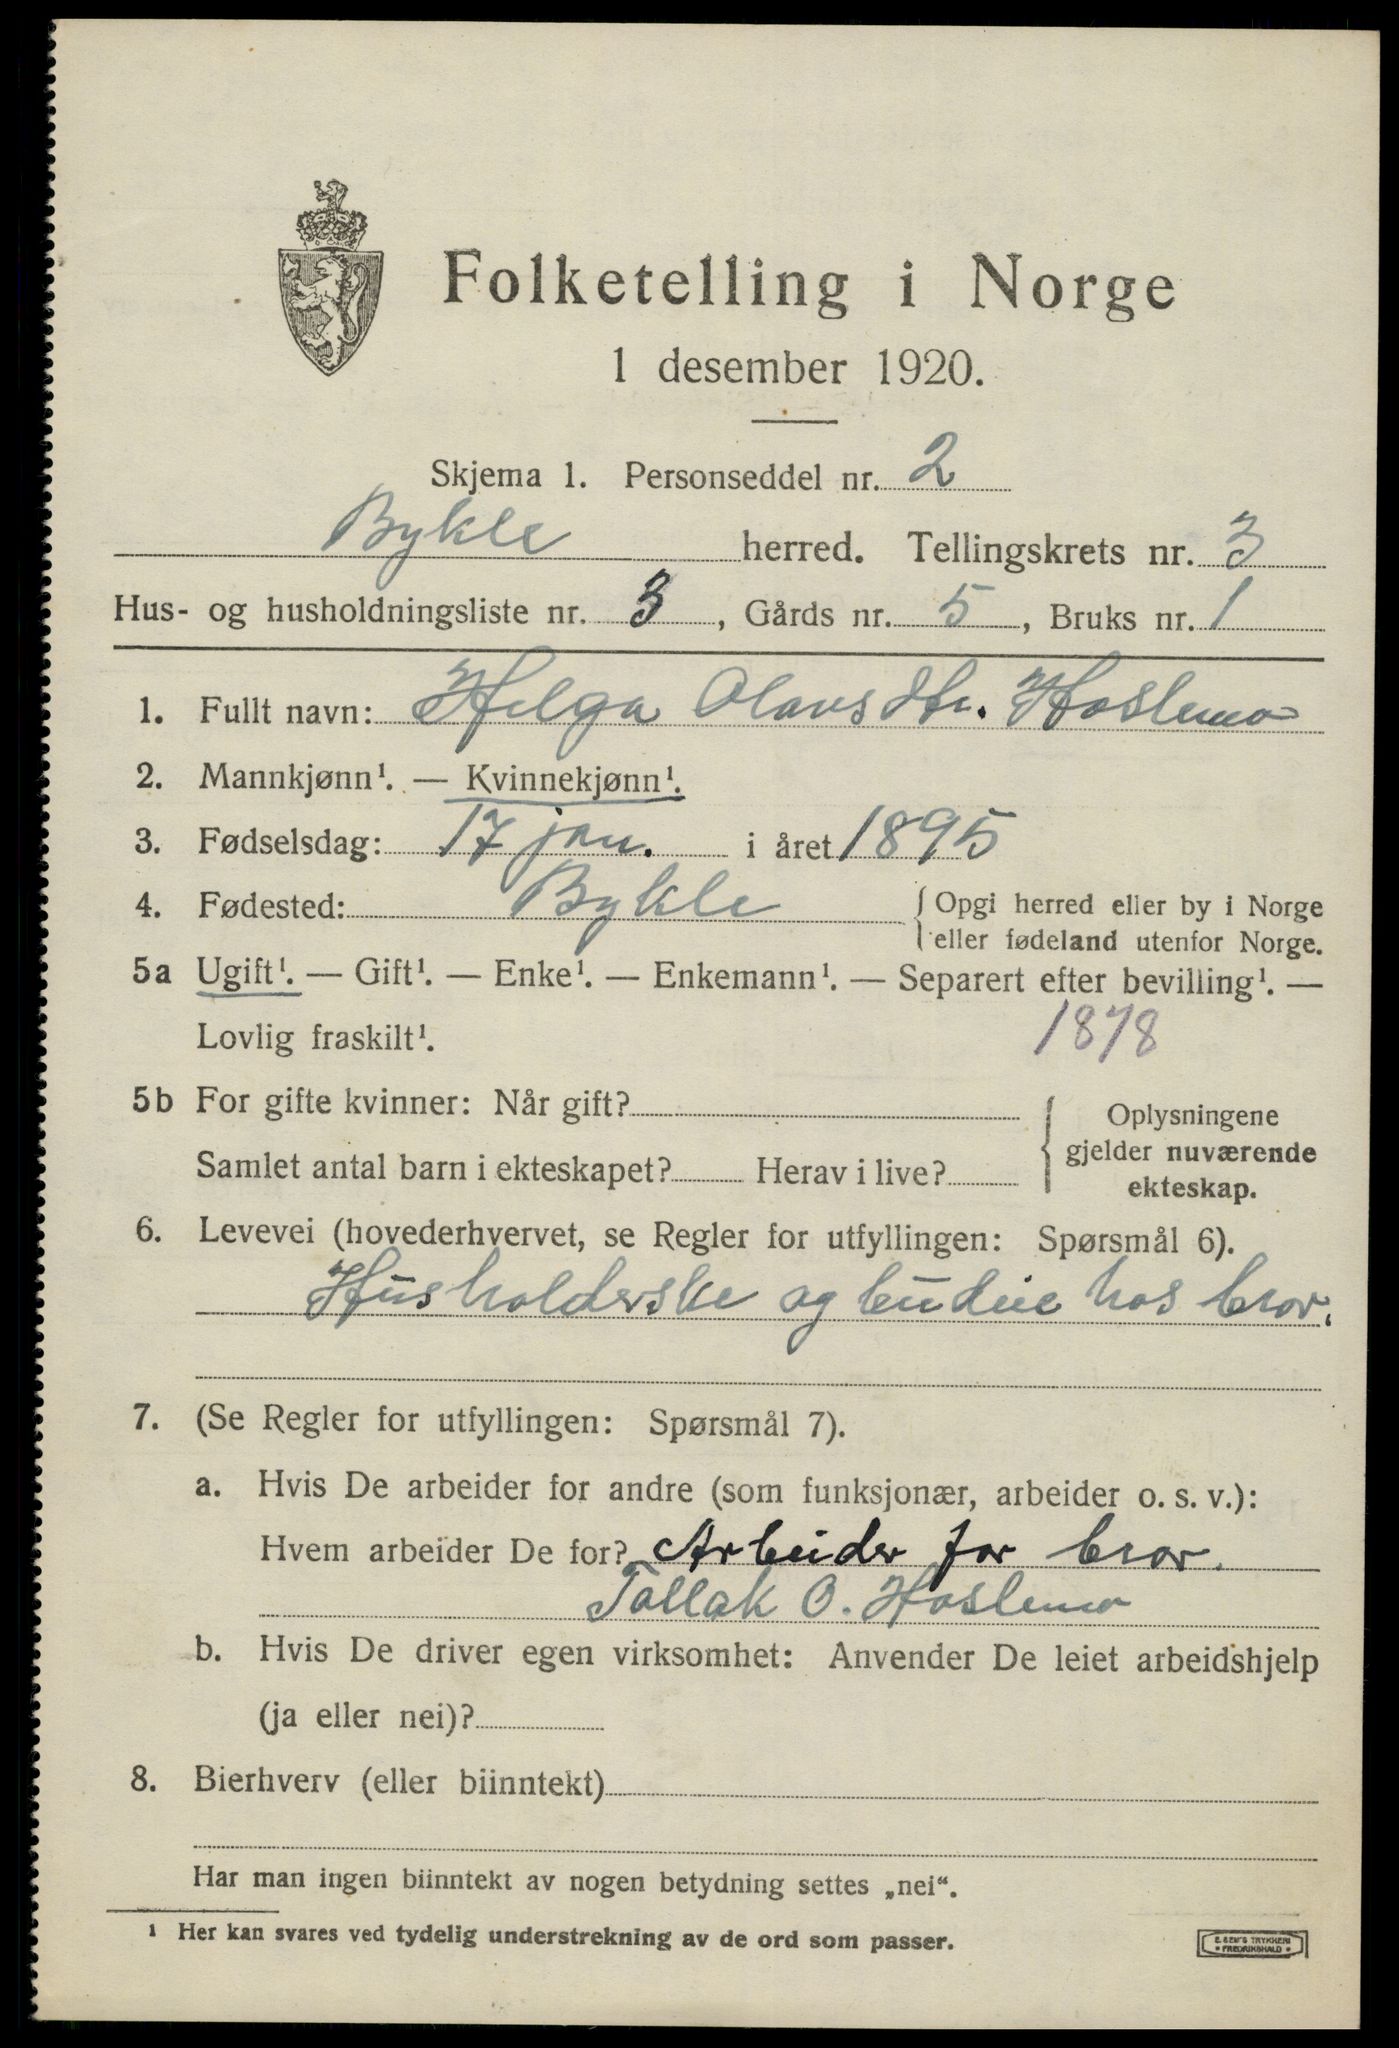 Folketelling i Norge
1 desember 1920.
Skjema 1. Personseddel nr. 2
Bykle herred. Tellingskrets nr. 3
Hus- og husholdningsliste nr. 3, Gårds nr. 5, Bruks nr. 1
1. Fullt navn: Helga Olavsdtr. Hoslemo
2. Mannkjønn¹. — Kvinnekjønn¹.
3. Fødselsdag: 17 jan. i året 1895
4. Fødested: Bykle { Opgi herred eller by i Norge
eller fødeland utenfor Norge.
5a Ugift¹. — Gift¹. — Enke¹. — Enkemann¹. — Separert efter bevilling¹. —
Lovlig fraskilt¹. 1878
5b For gifte kvinner: Når gift? { Oplysningene
gjelder nuværende
Samlet antal barn i ekteskapet? Herav i live?
ekteskap.
6. Levevei (hovederhvervet, se Regler for utfyllingen: Spørsmål 6).
Husholderske og budeie hos bror.
7. (Se Regler for utfyllingen: Spørsmål 7).
a. Hvis De arbeider for andre (som funksjonær, arbeider o. s. v.):
Hvem arbeider De for? Arbeider for bror.
Tallak O. Hoslemo
b. Hvis De driver egen virksomhet: Anvender De leiet arbeidshjelp
(ja eller nei)?
8. Bierhverv (eller biinntekt)
Har man ingen biinntekt av nogen betydning settes „nei“.
¹ Her kan svares ved tydelig understrekning av de ord som passer.
E. SEM'S TRYKKERI
• FREDRIKSHALD •